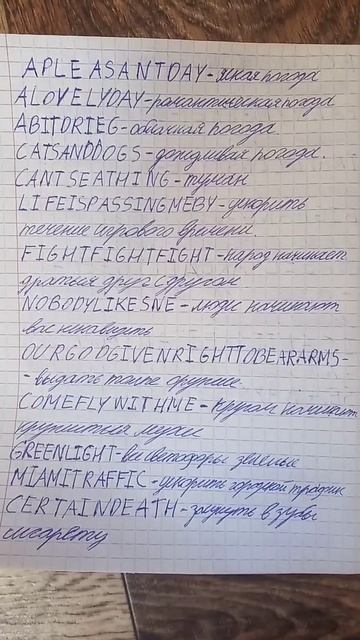 APLEASANTDAY - ясная погода
ALOVELYDAY - романтическая погода
ABITDRIEG - облачная погода
CATSANDDOGS - дождливая погода.
CANTSEATHING - туман
LIFEISPASSINGMEBY - ускорить
течение игрового времени.
FIGHTFIGHTFIGHT - народ начинает
драться друг с другом
NOBODYLIKESNE - люди начинают
вас ненавидеть
OURGODGIVENRIGHTTOBEARARMS -
- выдать толпе оружие.
COMEFLYWITHME - кругом начинают
кружиться мухи
GREENLIGHT - все светофоры зеленые
MIAMITRAFFIC - ускорить городской трафик
CERTAINDEATH - засунуть в зубы
сигарету